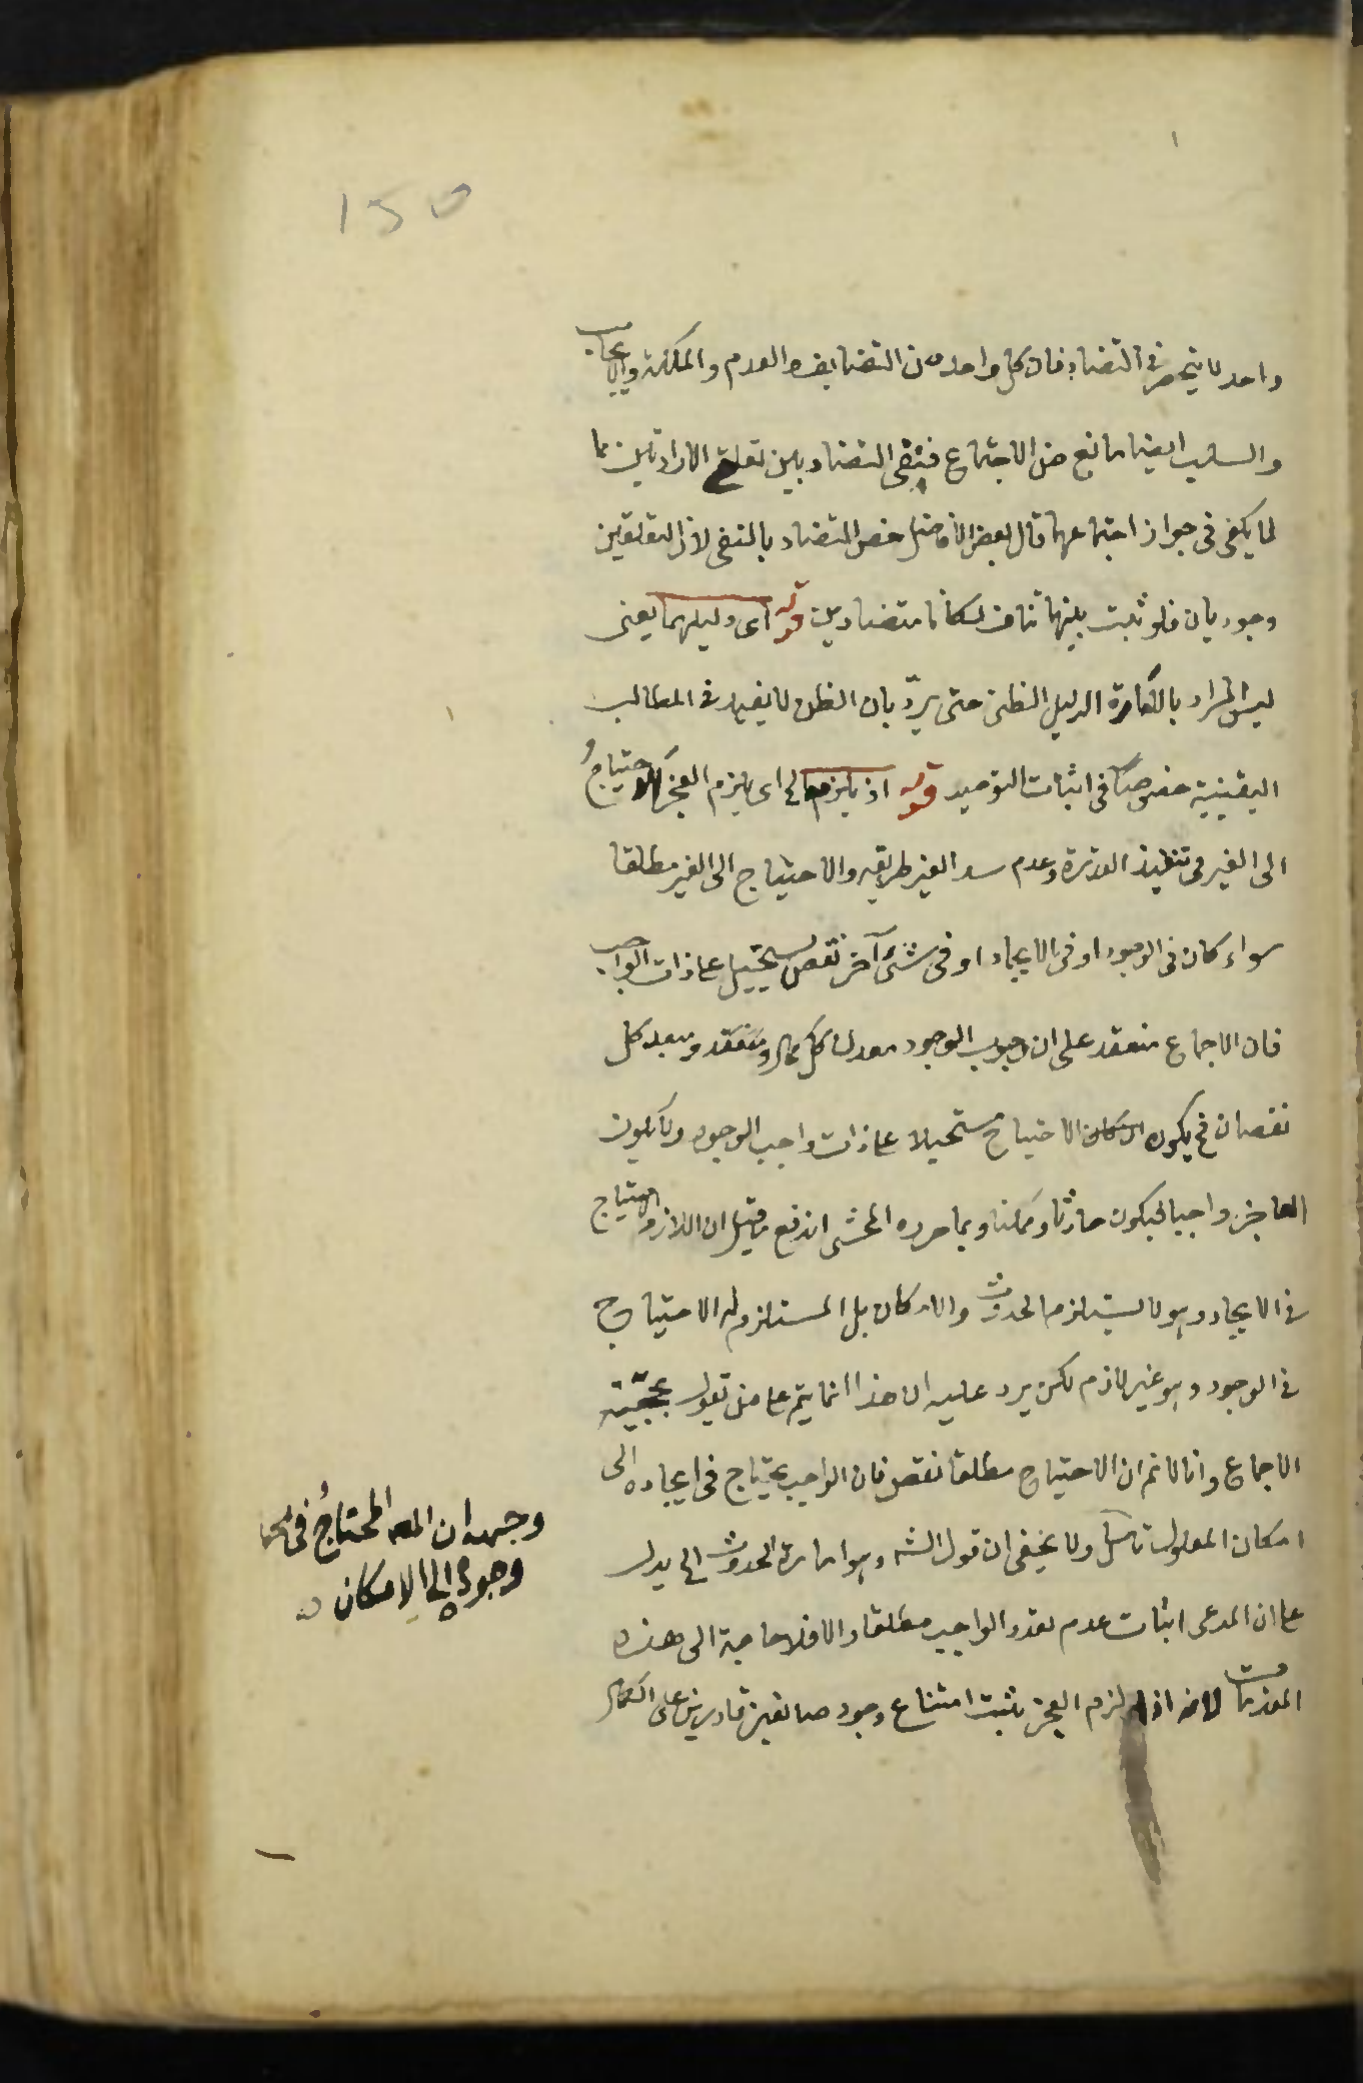 150
واحد لا ينحصر فى التضاد فان كل واحد من التضايف والعدم والملكة والايجاب
والسلب ايضا مانع من الاجتماع فنفى التضاد بين تعلق الارادتين مما
لا يكفى فى جواز اجتماعهما قال بعض الافاضل خص التضاد بالنفى لان التعلقين
وجوديان فلو ثبت بينهما تناف لكانا متضادين قوله اى دليلهما يعنى
ليس المراد بالامارة الدليل الظنى حتى يردّ بان الظن لا يفيد فى المطالب
اليقينية خصوصا فى اثبات التوحيد قوله اذ يلزم الخ اى يلزم العجز الاحتياجُ
الى الغير فى تنفيذ القدرة وعدم سد الغير طريقه والاحتياج الى الغير مطلقا
سواء كان فى الوجود او فى الايجاد او فى شئ آخر نقص يستحيل على ذات الواجب
فان الاجماع منعقد على ان وجوب الوجود معدن كل كمال ومبعد كل
نقصان فح يكون الاحتياج مستحيلا على ذات واجب الوجود ولا يكون
العاجز واجبا فيكون حادثا وممكنا وبما حرره المحشى اندفع ما قيل ان اللازم الاحتياج
فى الايجاد وهو لا يستلزم الحدوث والامكان بل المستلزم له الاحتياج
فى الوجود وهو غير لازم لكن يرد عليه ان هذا انما يتم على من يقول بحجّية
الاجماع وانا لانم ان الاحتياج مطلقا نقص فان الواجب يحتاج فى ايجاده الى
امكان المعلول تأمل ولا يخفى ان قول الشه وهو امارة الحدوث الخ يدل
على ان المدعى اثبات عدم تعدد الواجب مطلقا والا فلا حاجة الى هذه
المقدمات لانه اذا لزم العجز يثبت امتناع وجود صانعين قادرين على الكمال
وجهه ان المحتاجُ فى
وجوده الى الامكان